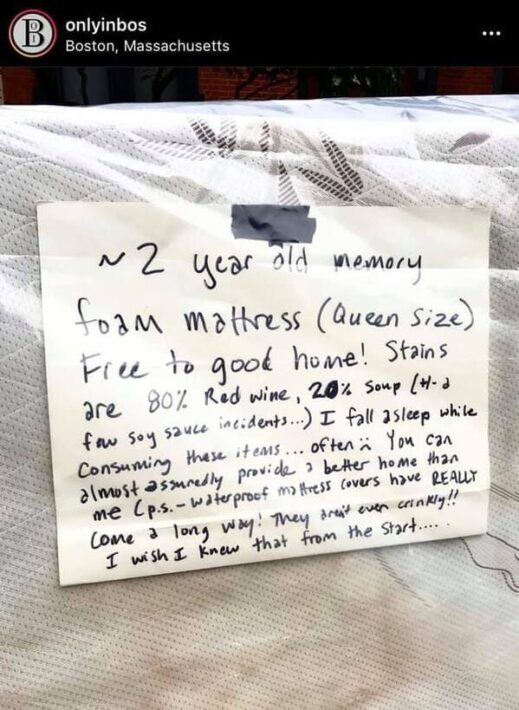 onlyinbos
Boston, Massachusetts
~ 2 year old memory
foam mattress (Queen Size)
Free to good home! Stains
are 80% Red wine, 20% soup (+/- a
few soy sauce incidents...) I fall asleep while
consuming these items... often :( You can
almost assuredly provide a better home than
me (p.s. - waterproof mattress covers have REALLY
come a long way! They aren't even crinkly!!
I wish I knew that from the start....